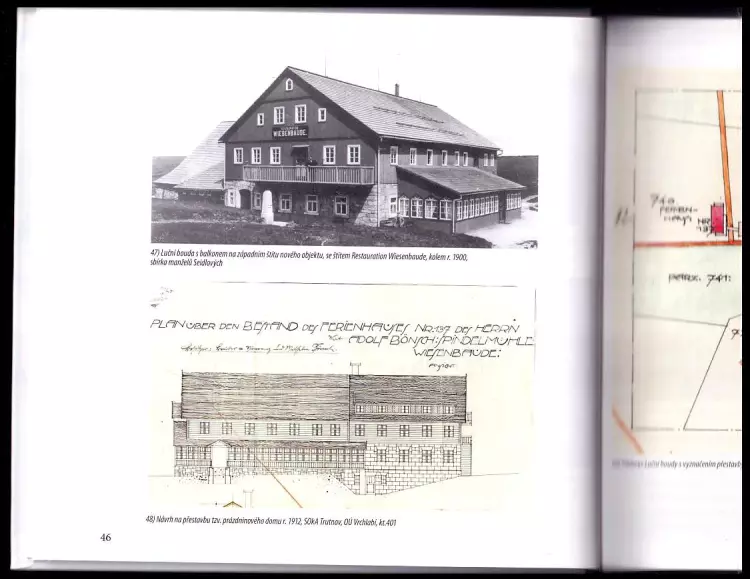 WIESENBAUDE
47) Luční bouda s balkonem na západním štítu nového objektu, se štítem Restauration Wiesenbaude, kolem r. 1900,
sbírka manželů Seidlových
PLAN ÜBER DEN BESTAND DES FERIENHAUSES NR:137 DES HERRN
ADOLF BÖNSCH: SPINDELMÜHLE
WIESENBAUDE:
48) Návrh na přestavbu tzv. prázdninového domu r. 1912, SOkA Trutnov, OÚ Vrchlabí, kt.401
46
746
FERIEN-
HAUS NR
137
PETROV. 741:
Luční boudy s vyznačením přestavby